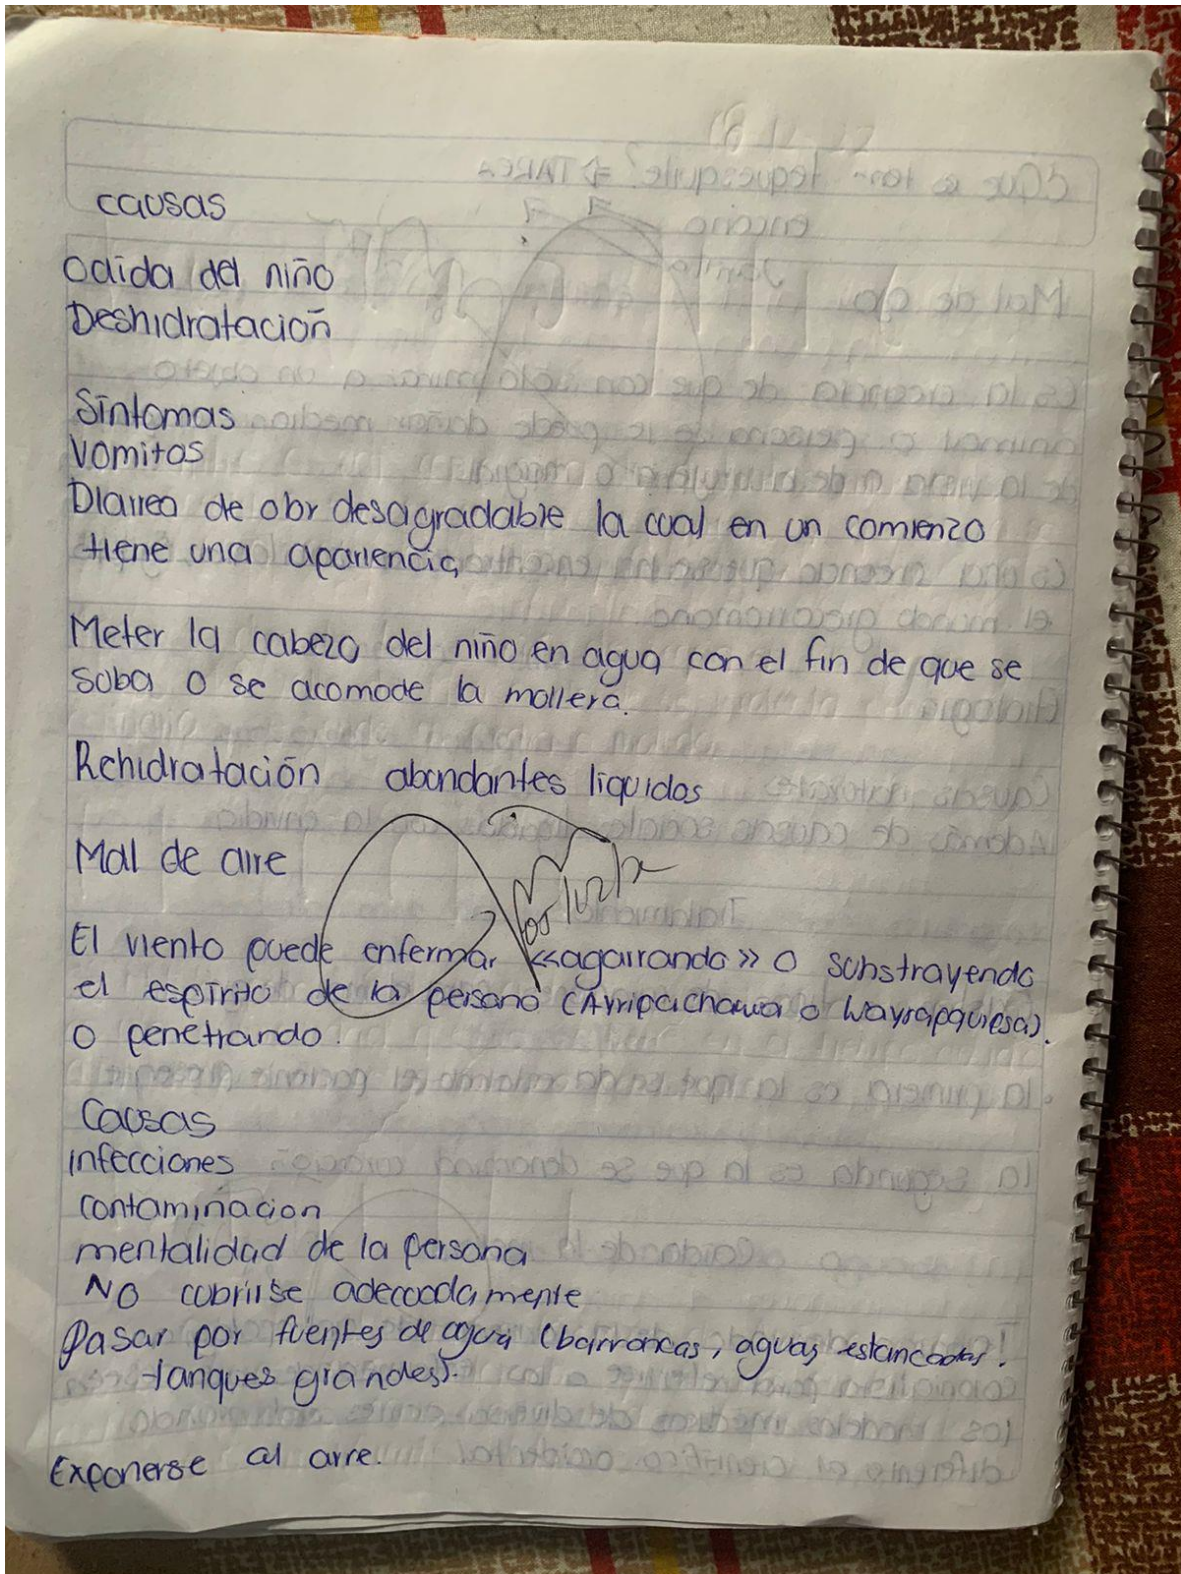 causas
caida del niño
Deshidratación
Síntomas
Vomitos
Diarrea de olor desagradable la cual en un comienzo
tiene una apariencia
Meter la cabeza del niño en agua con el fin de que se
suba o se acomode la mollera.
Rehidratación abundantes liquidos
Mal de aire
El viento puede enfermar «agarrando» o substrayendo
el espíritu de la persona (Ayripachawa o Wayrapaquiesa).
o penetrando.
Causas
infecciones
contaminacion
mentalidad de la persona
NO cubrirse adecuadamente
Pasar por fuentes de agua (barrancas, aguas estancadas,
tanques grandes).
Exponerse al aire.